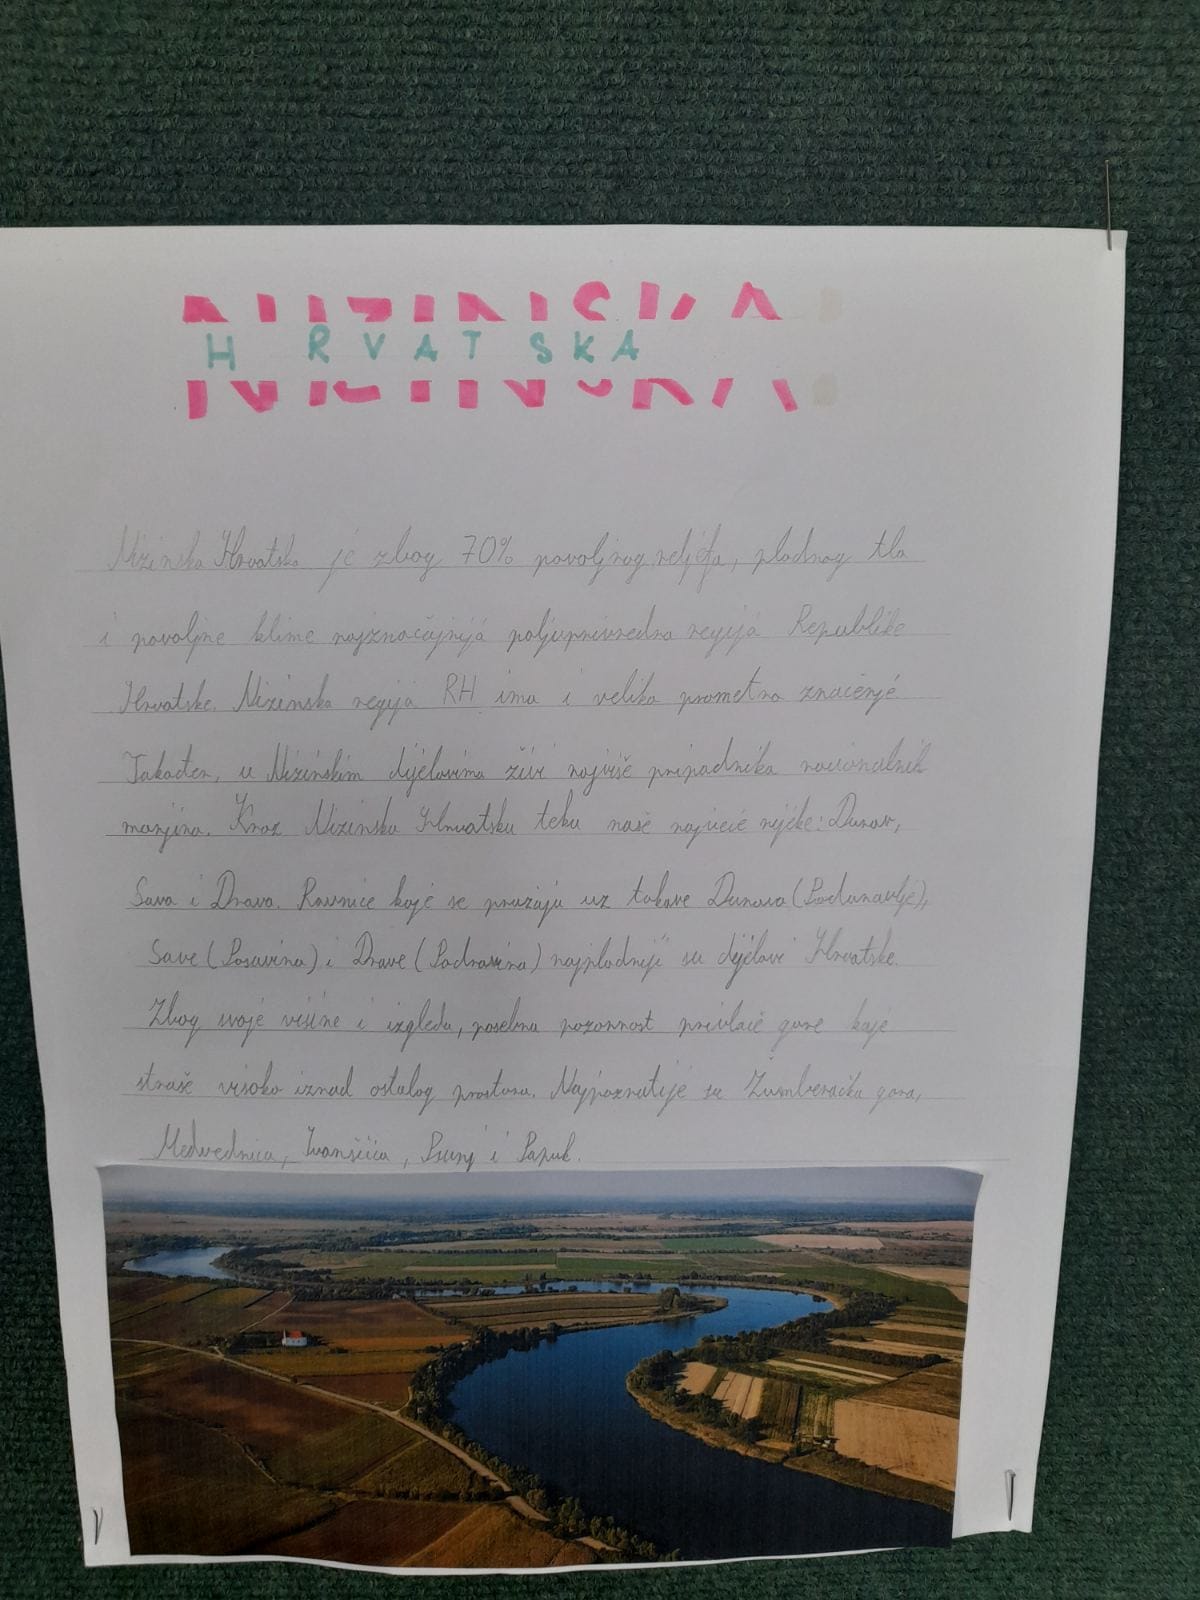 NIZINSKA
HRVATSKA
Nizinska Hrvatska je zbog 70% povoljnog reljefa, plodnog tla
i povoljne klime najznačajnija poljuprivredna regija Republike
Hrvatske. Nizinska regija RH ima i veliko prometno značenje.
Također, u Nizinskim dijelovima živi najviše pripadnika nacionalnih
manjina. Kroz Nizinsku Hrvatsku teku naše najveće rijeke: Dunav,
Sava i Drava. Ravnice koje se pružaju uz tokove Dunava (Podunavlje),
Save (Posavina) i Drave (Podravina) najplodniji su dijelovi Hrvatske.
Zbog svoje visine i izgleda, posebnu pozornost privlače gore koje
strše visoko iznad ostalog prostora. Najpoznatije su Žumberačka gora,
Medvednica, Ivanšćica, Psunj i Papuk.